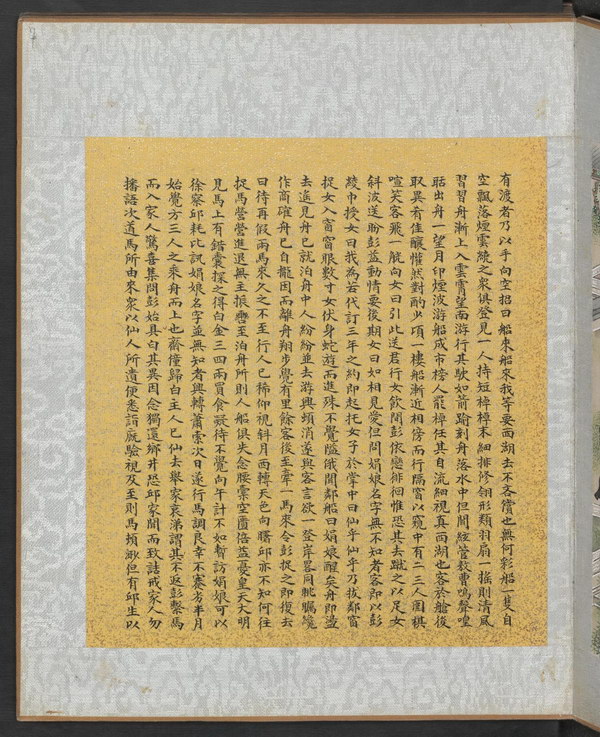 有渡者乃以手向空招曰船來船來我等要西湖去不吝償也無何彩船一隻自
空飄落煙雲繞之眾俱登見一人持短棹棹末細排修翎形類羽扇一搖則清風
習習舟漸上入雲霄望南游行其駛如箭踰刻舟落水中但聞絃管敖曹鳴聲喤
聒出舟一望月印煙波游船成市榜人罷棹任其自流細視真西湖也客於艙後
取異肴佳釀懽然對酌少頃一樓船漸近相傍而行隔窗以窺中有二三人圍棋
喧笑客飛一觥向女曰引此送君行女飲間彭依戀徘徊惟恐其去蹴之以足女
斜波送盼彭益動情要後期女曰如相見愛但問娟娘名字無不知者客即以彭
綾巾授女曰我為若代訂三年之約即起托女子於掌中曰仙乎仙乎乃扳鄰窗
捉女入窗窗眼數寸女伏身蛇游而進殊不覺隘俄聞鄰船曰娟娘醒矣舟即盪
去遙見舟已就泊舟中人紛紛並去游興頓消遂與客言欲一登岸畧同眺矚纔
作商確舟已自攏因而離舟翔步覺有里餘客後至牽一馬來令彭捉之即復去
曰待再假兩馬來久之不至行人已稀仰視斜月西轉天色向曙邱亦不知何往
捉馬營營進退無主振轡至泊舟所則人船俱失念腰橐空匱倍益憂皇天大明
見馬上有錯囊探之得白金三四兩買食凝待不覺向午計不如暫訪娟娘可以
徐察邱耗比訊娟娘名字並無知者興轉蕭索次日遂行馬調良幸不蹇劣半月
始覺方三人之乘舟而上也齋僮歸白主人已仙去舉家哀涕謂其不返彭繫馬
而入家人驚喜集問彭始具白其異因念獨還鄉井恐邱家聞而致詰戒家人勿
播語次道馬所由來眾以仙人所遺便悉詣厩驗視及至則馬頓渺但有邱生以